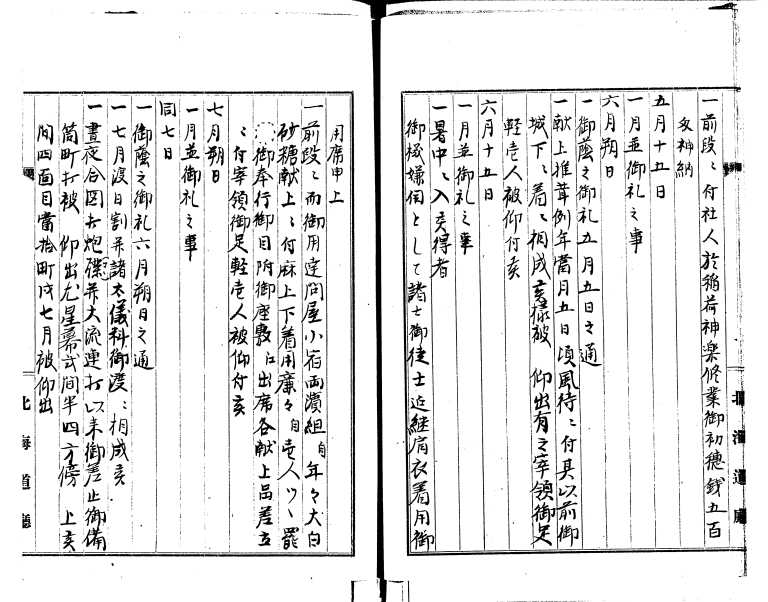 一前段ニ付社人於稲荷神楽修業御初穂銭五百
文神納
五月十五日
一月並御礼之事
六月朔日
一御蔭之御礼五月五日之通
一献上椎茸例年當月五日頃風待ニ付其以前御
城下ニ着ニ相成候様被　仰出有之宰領御足
軽壱人被仰付候
六月十五日
一月並御礼之事
一暑中ニ入候得者
御機嫌伺として諸士御徒士近継肩衣着用御
北海道廳
用席申上
一前段ニ而御用達問屋小宿両濱組ゟ年々大白
砂糖献上ニ付麻上下着用廉々ゟ壱人ツヽ罷
御奉行御目附御座敷江出席各献上品差立
ニ付宰領御足軽壱人被仰付候
七月朔日
一月並御礼之事
同七日
一御蔭之御礼六月朔日之通
一七月渡日割呈諸太儀料御渡ニ相成候
一晝夜合図大炮磔并大流連打以来御差止御備
筒町打被　仰出尤星幕弐間半四方傍　上候
間四面目當拾町戌七月被仰出
北海道廳